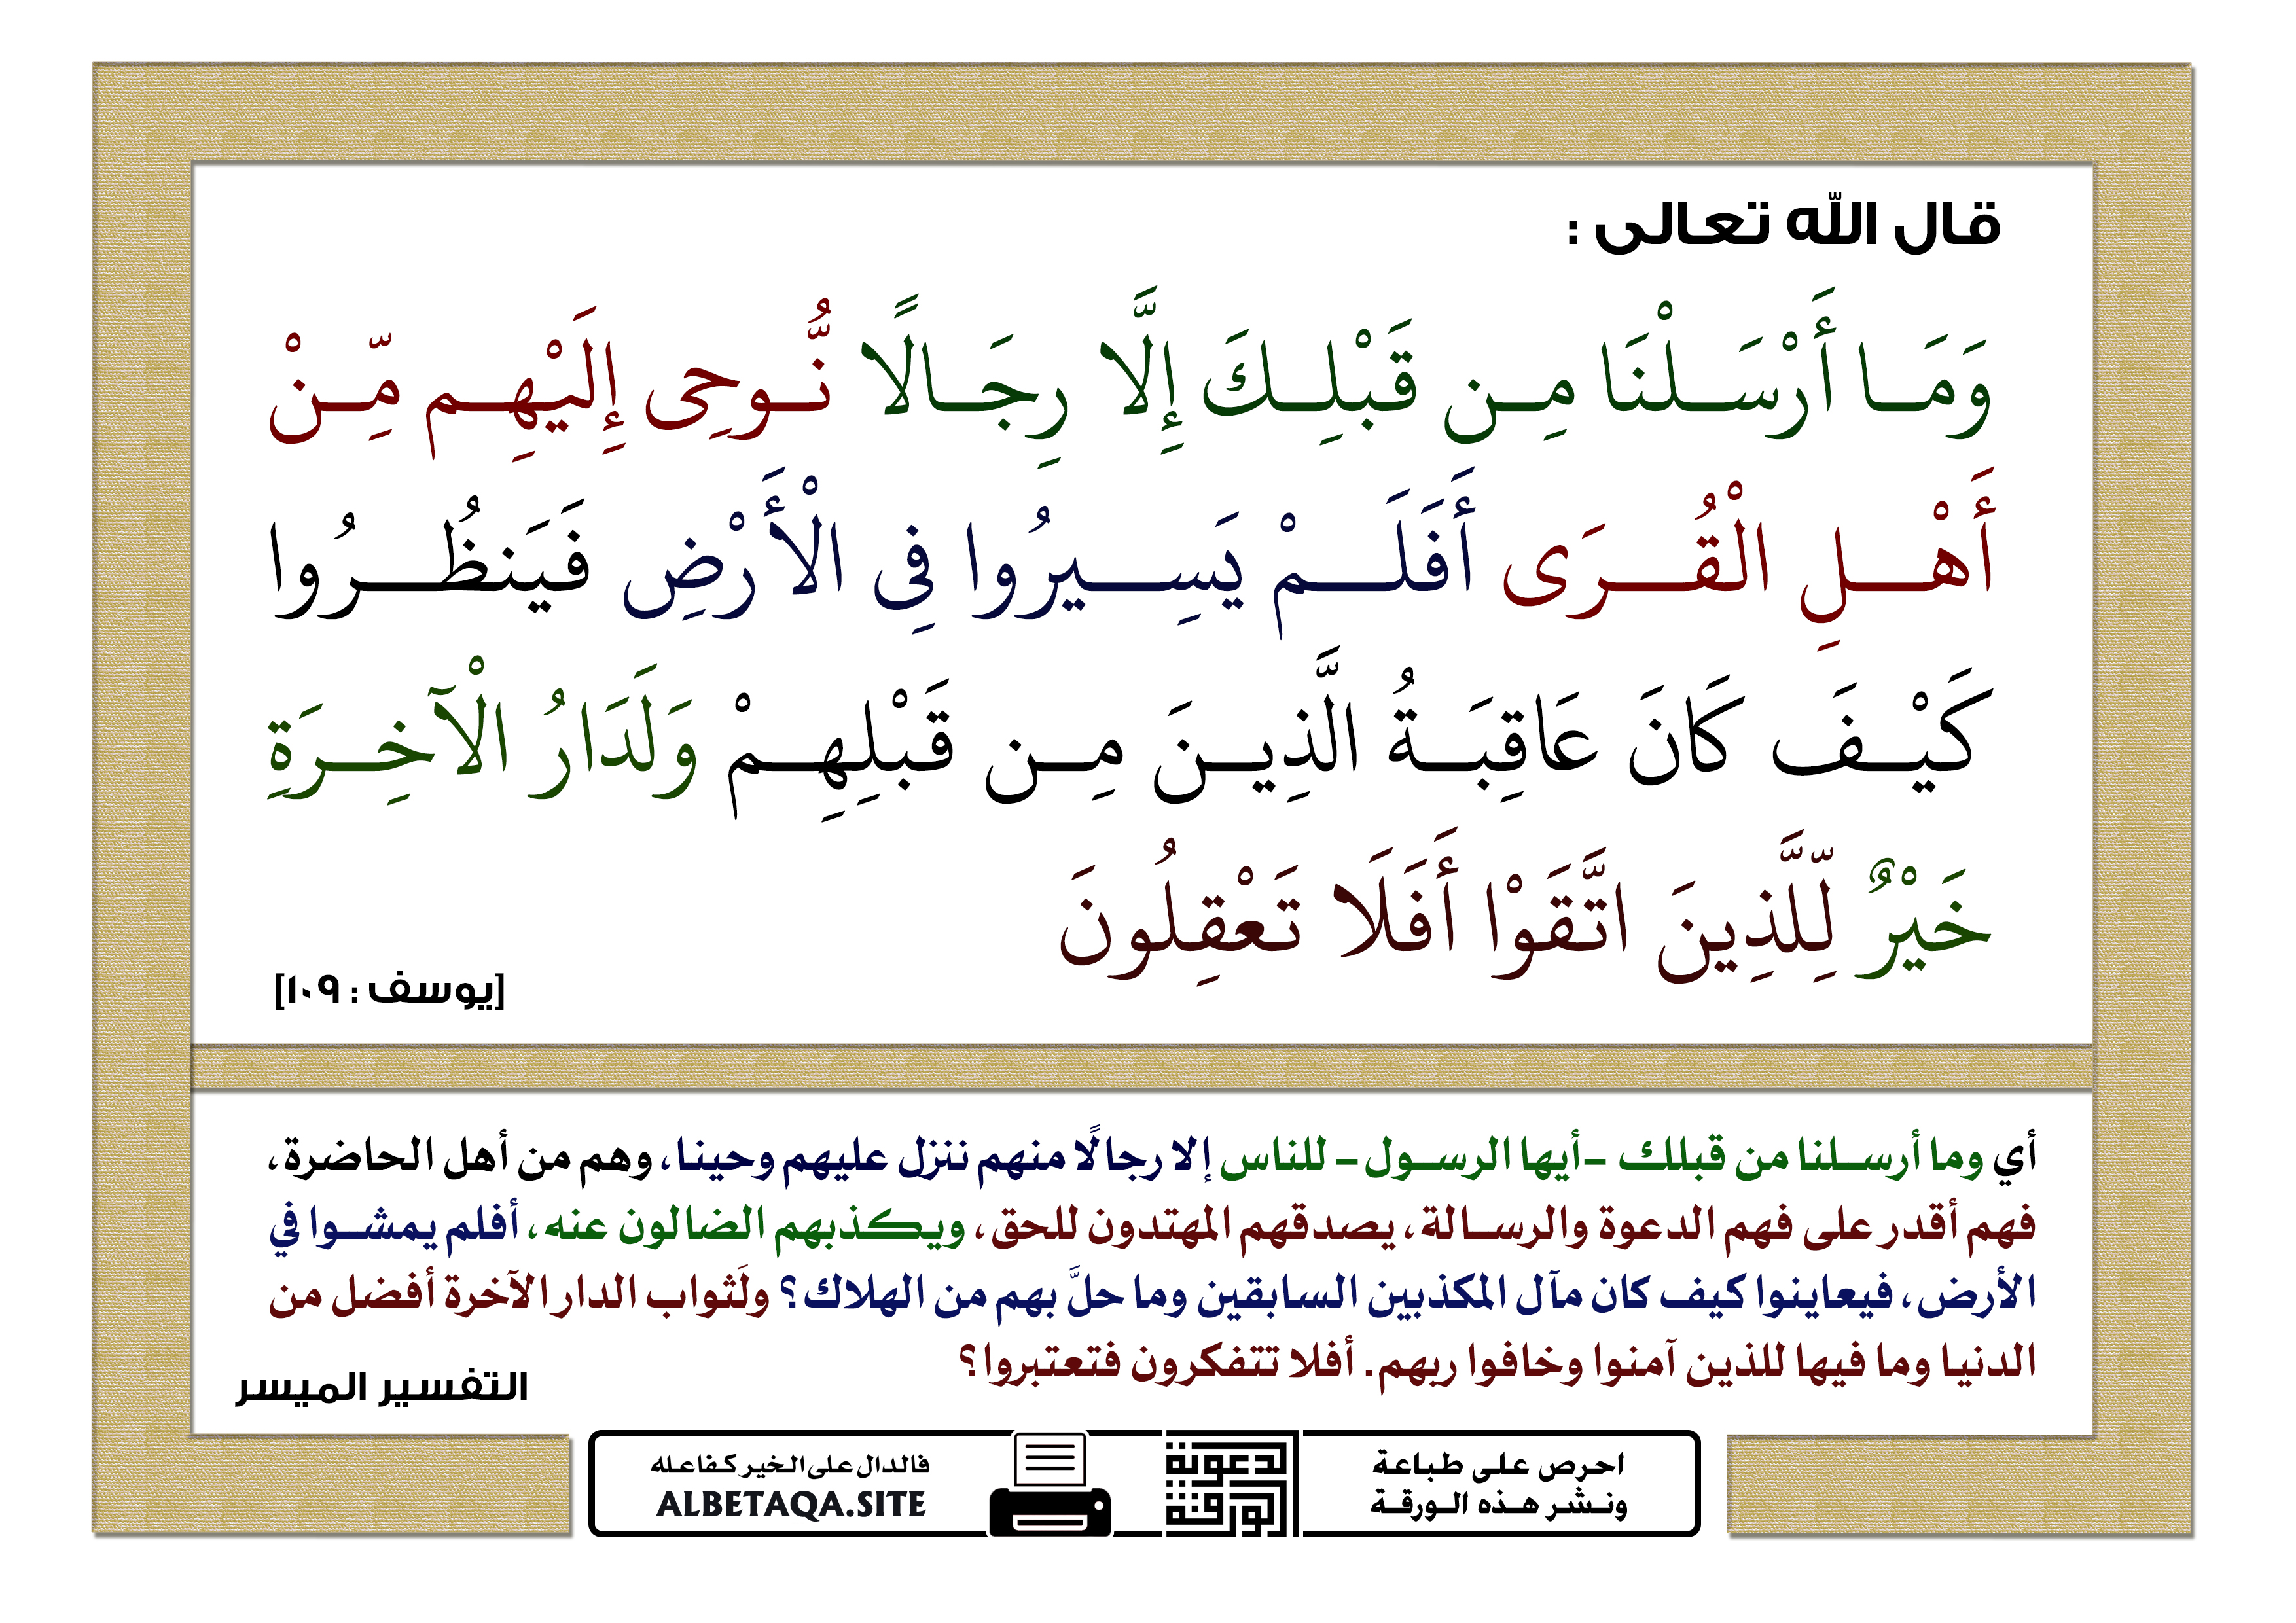 قال الله تعالى :
وَمَا أَرْسَلْنَا مِن قَبْلِكَ إِلَّا رِجَالًا نُّوحِى إِلَيْهِم مِّنْ
أَهْلِ الْقُرَى أَفَلَمْ يَسِيرُوا فِى الْأَرْضِ فَيَنظُرُوا
كَيْفَ كَانَ عَاقِبَةُ الَّذِينَ مِن قَبْلِهِمْ وَلَدَارُ الْآخِرَةِ
خَيْرٌ لِّلَّذِينَ اتَّقَوْا أَفَلَا تَعْقِلُونَ
[يوسف : ١٠٩]
أي وما أرسلنا من قبلك -أيها الرسول- للناس إلا رجالًا منهم ننزل عليهم وحينا، وهم من أهل الحاضرة،
فهم أقدر على فهم الدعوة والرسالة، يصدقهم المهتدون للحق، ويكذبهم الضالون عنه، أفلم يمشوا في
الأرض، فيعاينوا كيف كان مآل المكذبين السابقين وما حلَّ بهم من الهلاك؟ ولَثواب الدار الآخرة أفضل من
الدنيا وما فيها للذين آمنوا وخافوا ربهم. أفلا تتفكرون فتعتبروا؟
التفسير الميسر
احرص على طباعة
ونشر هذه الورقة
الدعوية
الورقة
فالدال على الخير كفاعله
ALBETAQA.SITE